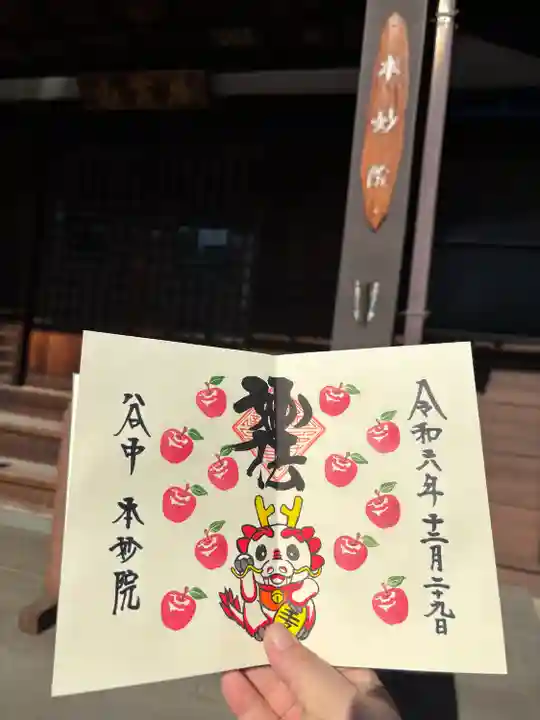 本妙院
令和六年十二月二十九日
妙法
谷中 本妙院